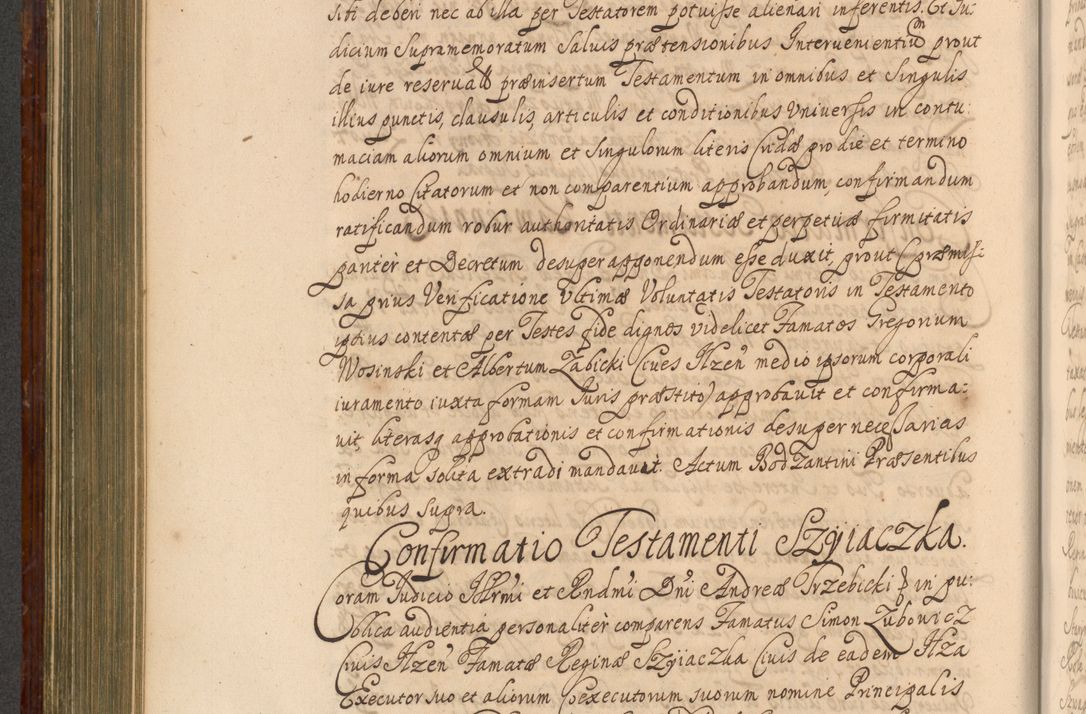 siti deberi nec ab illa per Testatorem potuisse alienari inferentis. Et Ju:
dicium Supramemoratum Salvis prætensionibus Intervenientiu prout
de iure reservatis præinsertum Testamentum in omnibus et Singulis
illius punctis, clausulis, articulis et conditionibus Universis in contu:
maciam aliorum omnium et Singulorum literis Cridæ pro die et termino
hodierno Citatorum et non comparentium approbandum, confirmandum
ratificandum robur authoritatis Ordinariæ et perpetuæ firmitatis
pariter et Decretum desuper apponendum esse duxit, prout (præmis:
sa prius Verificatione Ultimæ Voluntatis Testatoris in Testamento
ipsius contentæ per Testes fide dignos videlicet Famatos Gregorium
Wosinski et Albertum Zabicki Cives Ilzen medio ipsorum corporali
iuramento iuxta formam Juris præstito) approbavit et confirma:
vit, literasq approbationis et confirmationis desuper necessarias
in forma solita extradi mandavit. Actum Bodzantini Præsentibus
quibus supra.
Confirmatio Testamenti Szyiaczka.
Coram Judicio Illrmi et Rndmi Dni Andreæ Trzebicki in pu:
blica audientia personaliter comparens Famatus Simon Zubowicz
Civis Ilzen Famatæ Reginæ Szyiaczka Civis de eadem Ilza
Executor suo et aliorum Coexecutorum suorum nomine Principalis